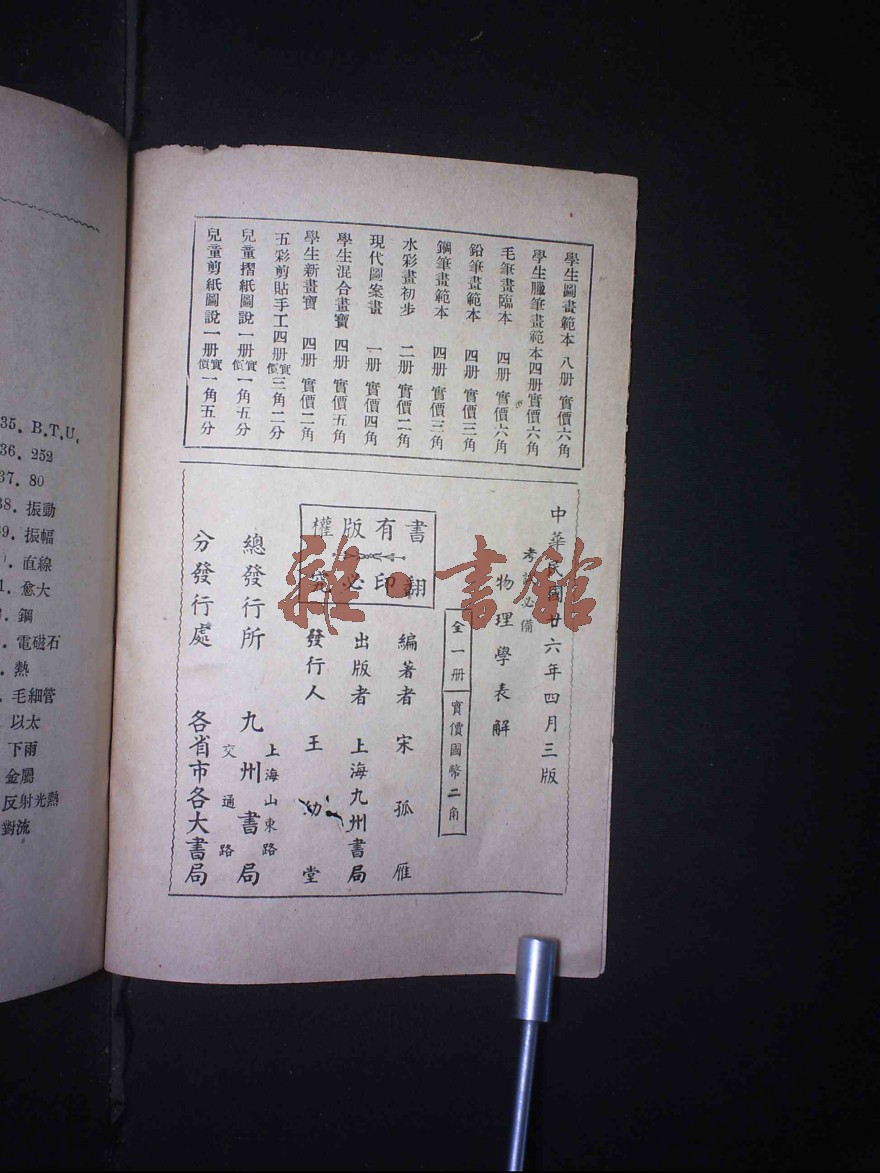 學生圖畫範本 八册 實價六角
學生臘筆畫範本四册實價六角
毛筆畫臨本 四册 實價六角
鉛筆畫範本 四册 實價三角
鋼筆畫範本 四册 實價三角
水彩畫初步 二册 實價二角
現代圖案畫 一册 實價四角
學生混合畫寶 四册 實價五角
學生新畫寶 四册 實價二角
五彩剪貼手工四册實價三角二分
兒童摺紙圖說一册實價一角五分
兒童剪紙圖說一册實價一角五分
中華民國廿六年四月三版
考試必備
物理學表解
全一册 實價國幣二角
書有版權
翻印必究
編著者 宋孤雁
出版者 上海九州書局
發行人 王幼堂
總發行所 九州書局
上海山東路
交通路
分發行處 各省市各大書局
35. B.T.U.
36. 252
37. 80
38. 振動
39. 振幅
直線
愈大
鋼
電磁石
熱
毛細管
以太
下雨
金屬
反射光熱
對流
書館